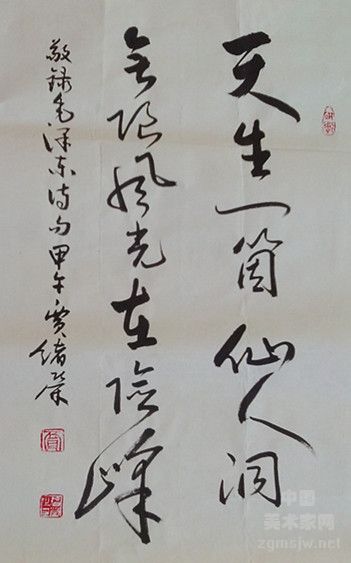 天生一箇仙人洞
無限風光在險峰
敬錄毛澤東詩句甲午賈緒榮
中国
美术家网
zgmsjw.net